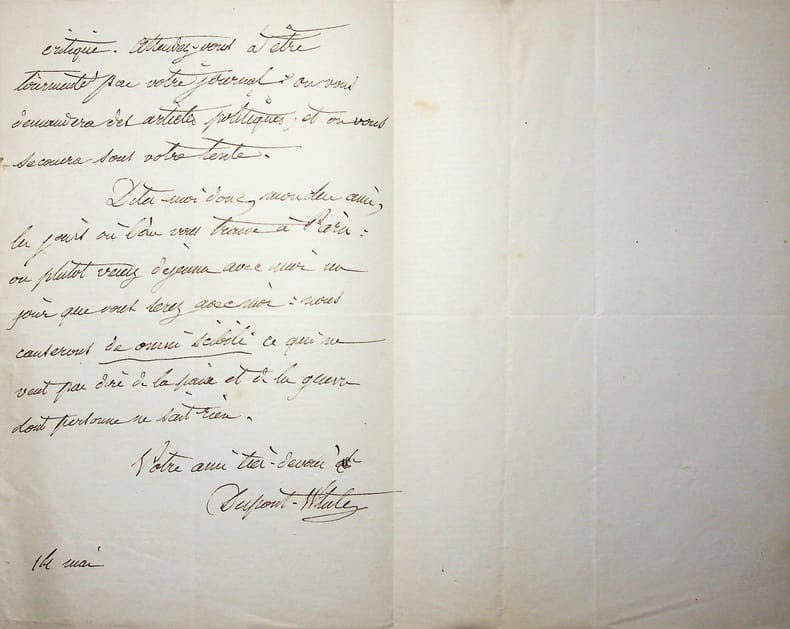 critique. Attendez-vous à être
tourmenté par votre journal : on vous
demandera des articles politiques, et on vous
secouera sous votre tente.
Dites-moi donc, mon cher ami,
les jours où l'on vous trouve à Paris :
ou plutôt venez déjeuner avec moi un
jour que vous serez avec moi : nous
causerons de omni scibili ce qui ne
veut pas dire de la paix et de la guerre
dont personne ne sait rien.
Votre ami très-dévoué
Dupont-White
14 mai